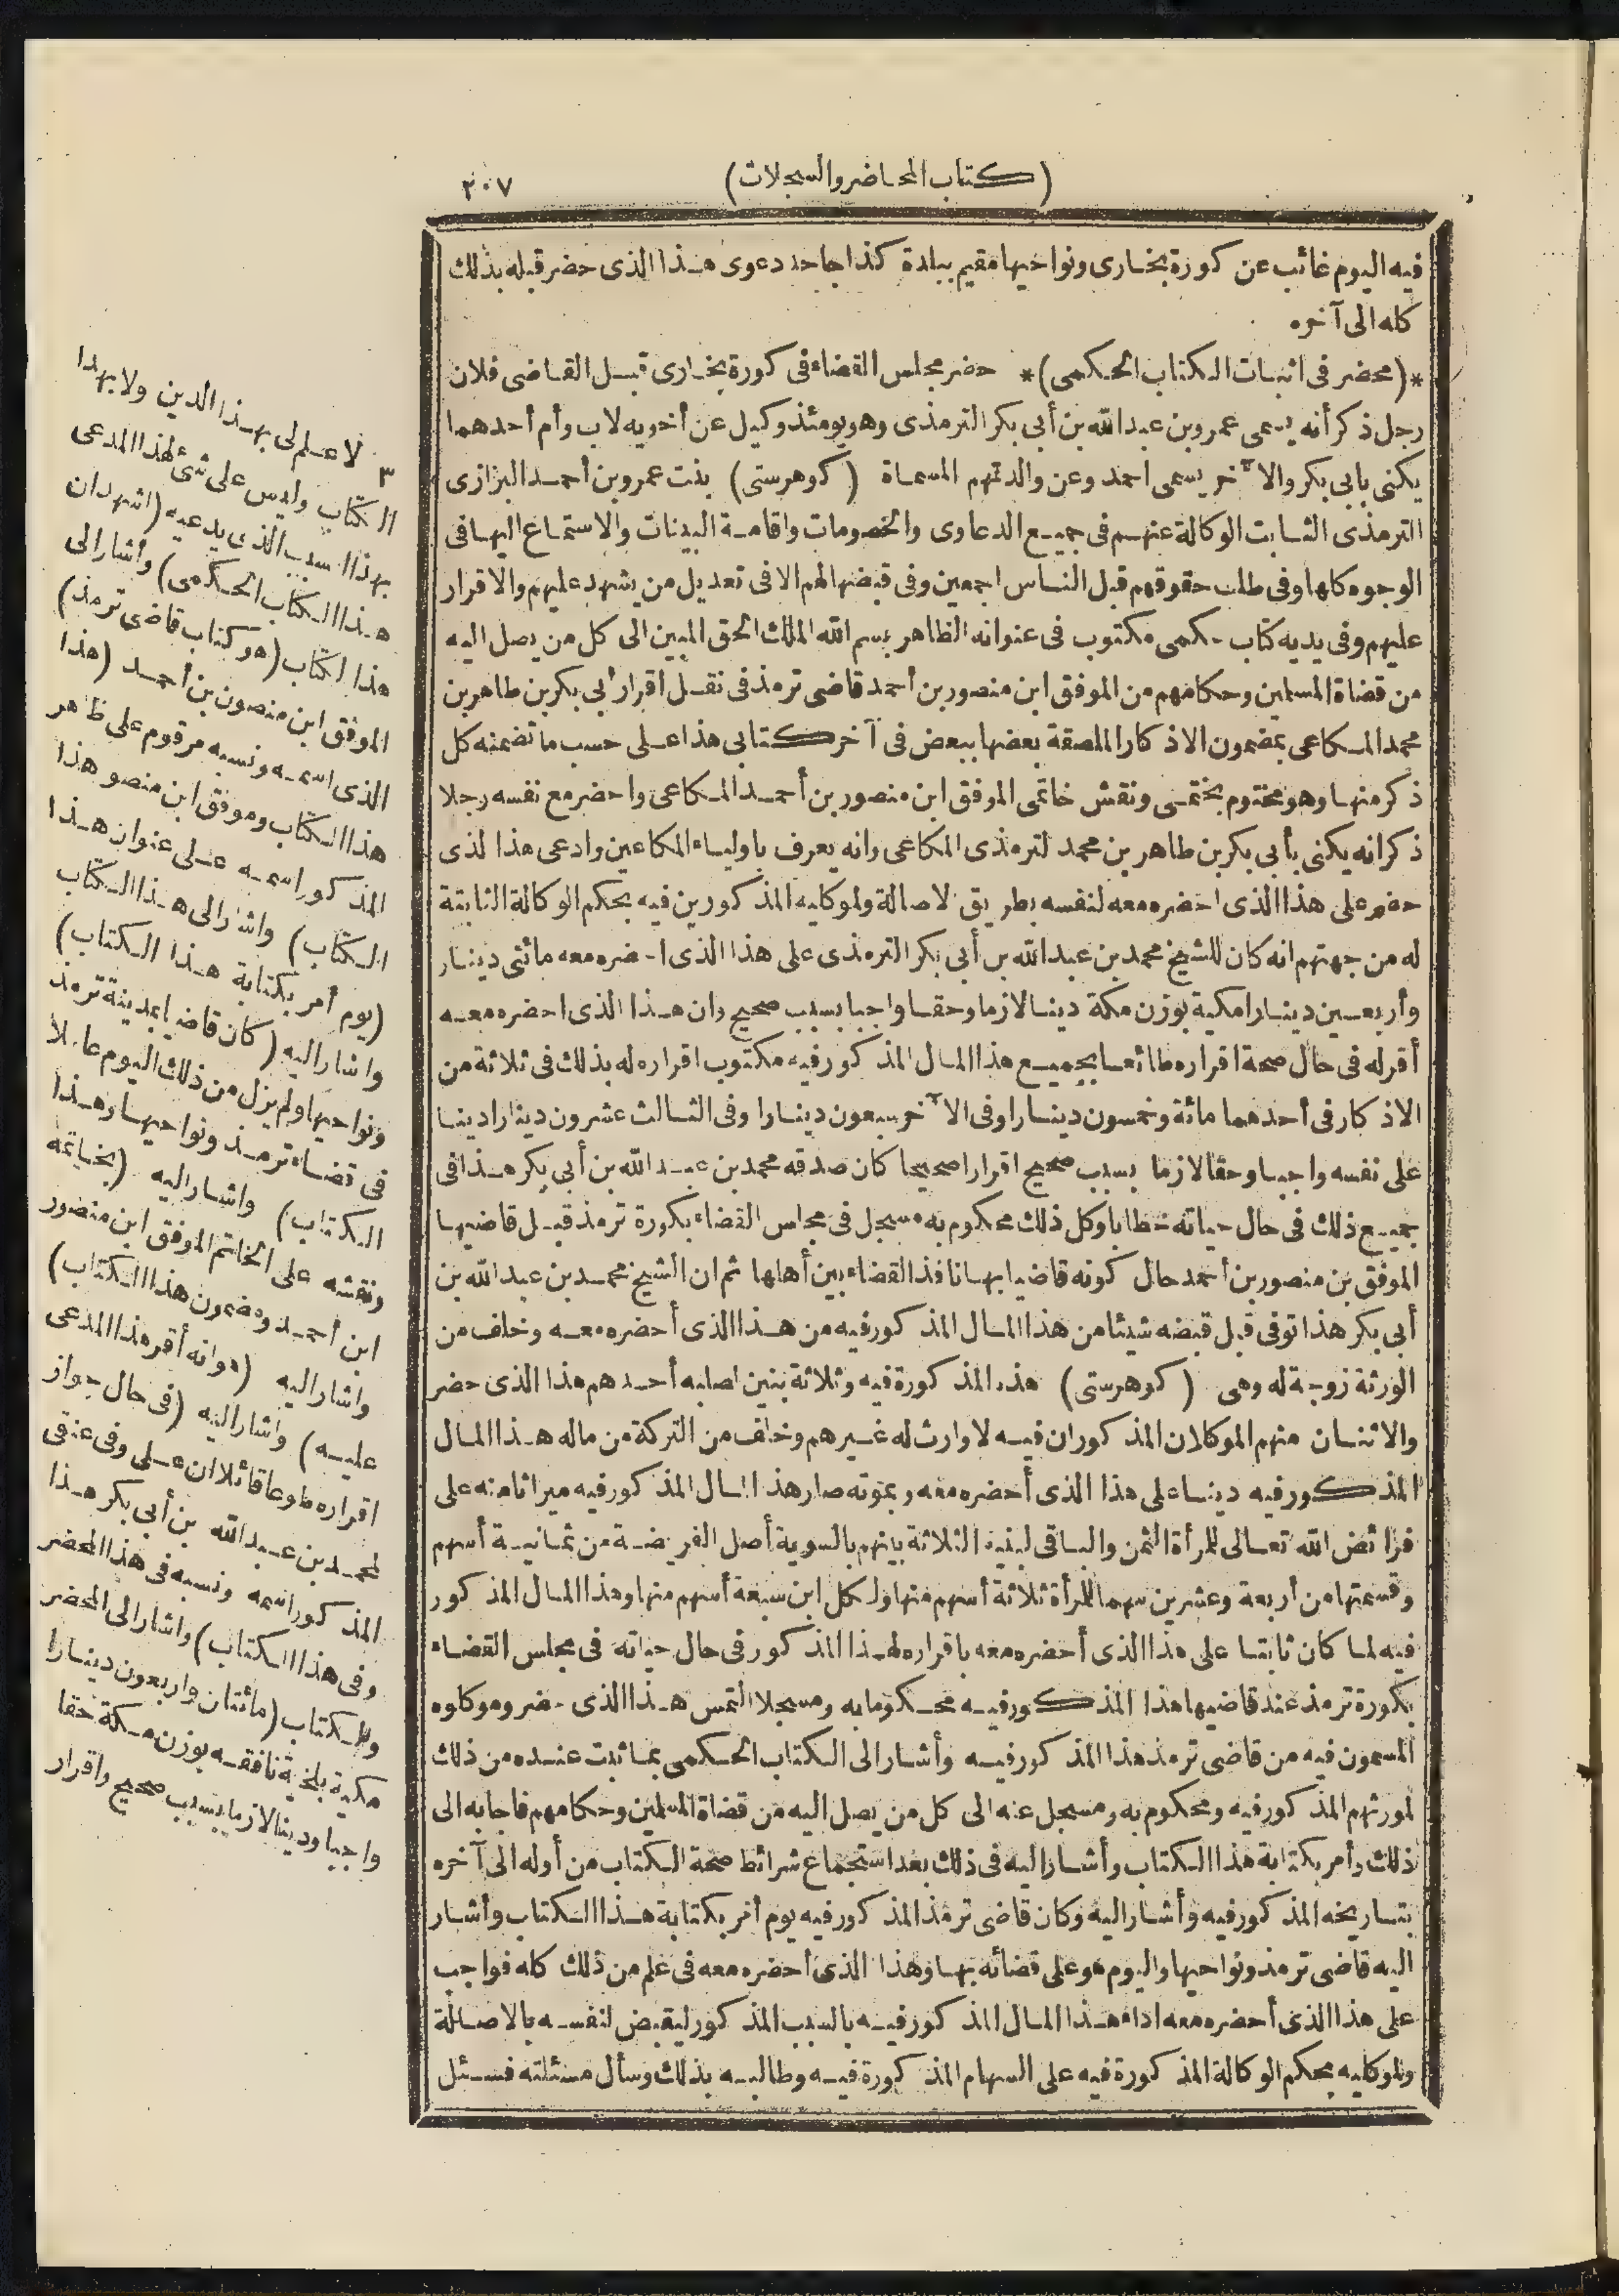 (كتاب المحاضر والسجلات)
٣٠٧
فيه اليوم غائب عن كورة بخارى ونواحيها مقيم ببلدة كذا جاحد دعوى هذا الذى حضر قبله بذلك
كله الى آخره
*(محضر فى اثبات الكتاب الحكمى)* حضر مجلس القضاء فى كورة بخارى قبل القاضى فلان
رجل ذكر أنه يسمى عمرو بن عبد الله بن أبى بكر الترمذى وهو يومئذ وكيل عن أخويه لاب وأم أحدهما
يكنى بابى بكر والآخر يسمى احمد وعن والدتهم المسماة (كوهرستى) بنت عمرو بن أحمد البزازى
الترمذى الثابت الوكالة عنهم فى جميع الدعاوى والخصومات واقامة البينات والاستماع اليها فى
الوجوه كلها وفى طلب حقوقهم قبل الناس اجمعين وفى قبضها لهم الا فى تعديل من يشهد عليهم والاقرار
عليهم وفى يديه كتاب حكمى مكتوب فى عنوانه الظاهر بسم الله الملك الحق المبين الى كل من يصل اليه
من قضاة المسلمين وحكامهم من الموفق ابن منصور بن أحمد قاضى ترمذ فى نقل اقرار أبى بكر بن طاهر بن
محمد المكاعى بمضمون الاذ كار الملصقة بعضها ببعض فى آخر كتابى هذا على حسب ما تضمنه كل
ذكر منها وهو مختوم بختمى ونقش خاتمى الموفق ابن منصور بن أحمد المكاعى واحضر مع نفسه رجلا
ذكر انه يكنى بأبى بكر بن طاهر بن محمد لترمذى المكاعى وانه يعرف باولياء المكاعين وادعى هذا لذى
حضر على هذا الذى احضره معه لنفسه بطريق لاصالة ولموكليه المذكورين فيه بحكم الوكالة الثابتة
له من جهتهم انه كان للشيخ محمد بن عبد الله بن أبى بكر الترمذى على هذا الذى احضره معه مائتى دينار
وأربعين دينارا مكية بوزن مكة دينا لازما وحقا واجبا بسبب صحيح وان هذا الذى احضره معه
أقر له فى حال صحة اقراره طائعا بجميع هذا المال المذكور فيه مكتوب اقراره له بذلك فى ثلاثة من
الاذ كار فى أحدهما مائة وخمسون دينارا وفى الآخر سبعون دينارا وفى الثالث عشرون دينارا دينا
على نفسه واجبا وحقا لازما بسبب صحيح اقرارا صحيحا كان صدقه محمد بن عبد الله بن أبى بكر هذا فى
جميع ذلك فى حال حياته خطابا وكل ذلك محكوم به مسجل فى مجلس القضاء بكورة ترمذ قبل قاضيها
الموفق بن منصور بن أحمد حال كونه قاضيا بها نافذ القضاء بين أهلها ثم ان الشيخ محمد بن عبد الله بن
أبى بكر هذا توفى قبل قبضه شيئا من هذا المال المذكور فيه من هذا الذى أحضره معه وخلف من
الورثة زوجة له وهى (كوهرستى) هذه المذكورة فيه وثلاثة بنين لصلبه أحدهم هذا الذى حضر
والاثنان منهم الموكلان المذكوران فيه لا وارث له غيرهم وخلف من التركة من ماله هذا المال
المذكور فيه دينا على هذا الذى أحضره معه وبموته صار هذا المال المذكور فيه ميراثا منه على
فرائض الله تعالى للمرأة الثمن والباقى لبنيه الثلاثة بينهم بالسوية أصل الفريضة من ثمانية أسهم
وقسمتها من أربعة وعشرين سهما للمرأة ثلاثة أسهم منها ولكل ابن سبعة أسهم منها وهذا المال المذكور
فيه لما كان ثابتا على هذا الذى أحضره معه باقراره لهذا المذكور فى حال حياته فى مجلس القضاء
بكورة ترمذ عند قاضيها هذا المذكور فيه محكوما به ومسجلا التمس هذا الذى حضر وموكلوه
المسمون فيه من قاضى ترمذ هذا المذكور فيه وأشار الى الكتاب الحكمى بما ثبت عنده من ذلك
لمورثهم المذكور فيه ومحكوم به ومسجل عنه الى كل من يصل اليه من قضاة المسلمين وحكامهم فاجابه الى
ذلك وأمر بكتابة هذا الكتاب وأشار اليه فى ذلك بعد استجماع شرائط صحة الكتاب من أوله الى آخره
بتاريخه المذكور فيه وأشار اليه وكان قاضى ترمذ المذكور فيه يوم أمر بكتابة هذا الكتاب وأشار
اليه قاضى ترمذ ونواحيها واليوم هو على قضائه بها وهذا الذى احضره معه فى علم من ذلك كله فواجب
على هذا الذى أحضره معه اداء هذا المال المذكور فيه بالسبب المذكور ليقبض لنفسه بالاصالة
ولموكليه بحكم الوكالة المذكورة فيه على السهام المذكورة فيه وطالبه بذلك وسأل مسئلته فسئل
٣ لا علم لى بهذا الدين ولا بهذا
الكتاب وليس على شئ لهذا المدعى
بهذا السبب الذى يدعيه (اشهد ان
هذا الكتاب الحكمى) وأشار الى
هذا الكتاب (هو كتاب قاضى ترمذ)
الموفق ابن منصون بن أحمد (هذا
الذى اسمه ونسبه مرقوم على ظاهر
هذا الكتاب وموفق ابن منصو هذا
المذكور اسمه على عنوان هذا
الكتاب) واشار الى هذا الكتاب
(يوم أمر بكتابة هذا الكتاب)
واشار اليه (كان قاضيا بمدينة ترمذ
ونواحيها ولم يزل من ذلك اليوم عاملا
فى قضاء ترمذ ونواحيها وهذا
الكتاب) واشار اليه (بخاتمه
ونقشه على الخاتم الموفق ابن منصور
ابن أحمد ومضمون هذا الكتاب)
واشار اليه (هو انه أقر هذا المدعى
عليه) واشار اليه (فى حال جواز
اقراره طوعا قائلا ان على وفى عنقى
لمحمد بن عبد الله بن أبى بكر هذا
المذكور اسمه ونسبه فى هذا المحضر
وفى هذا الكتاب) واشار الى المحضر
والكتاب (مائتان واربعون دينارا
مكية بلخية نافقه بوزن مكة حقا
واجبا ودينا لازما بسبب صحيح واقرار